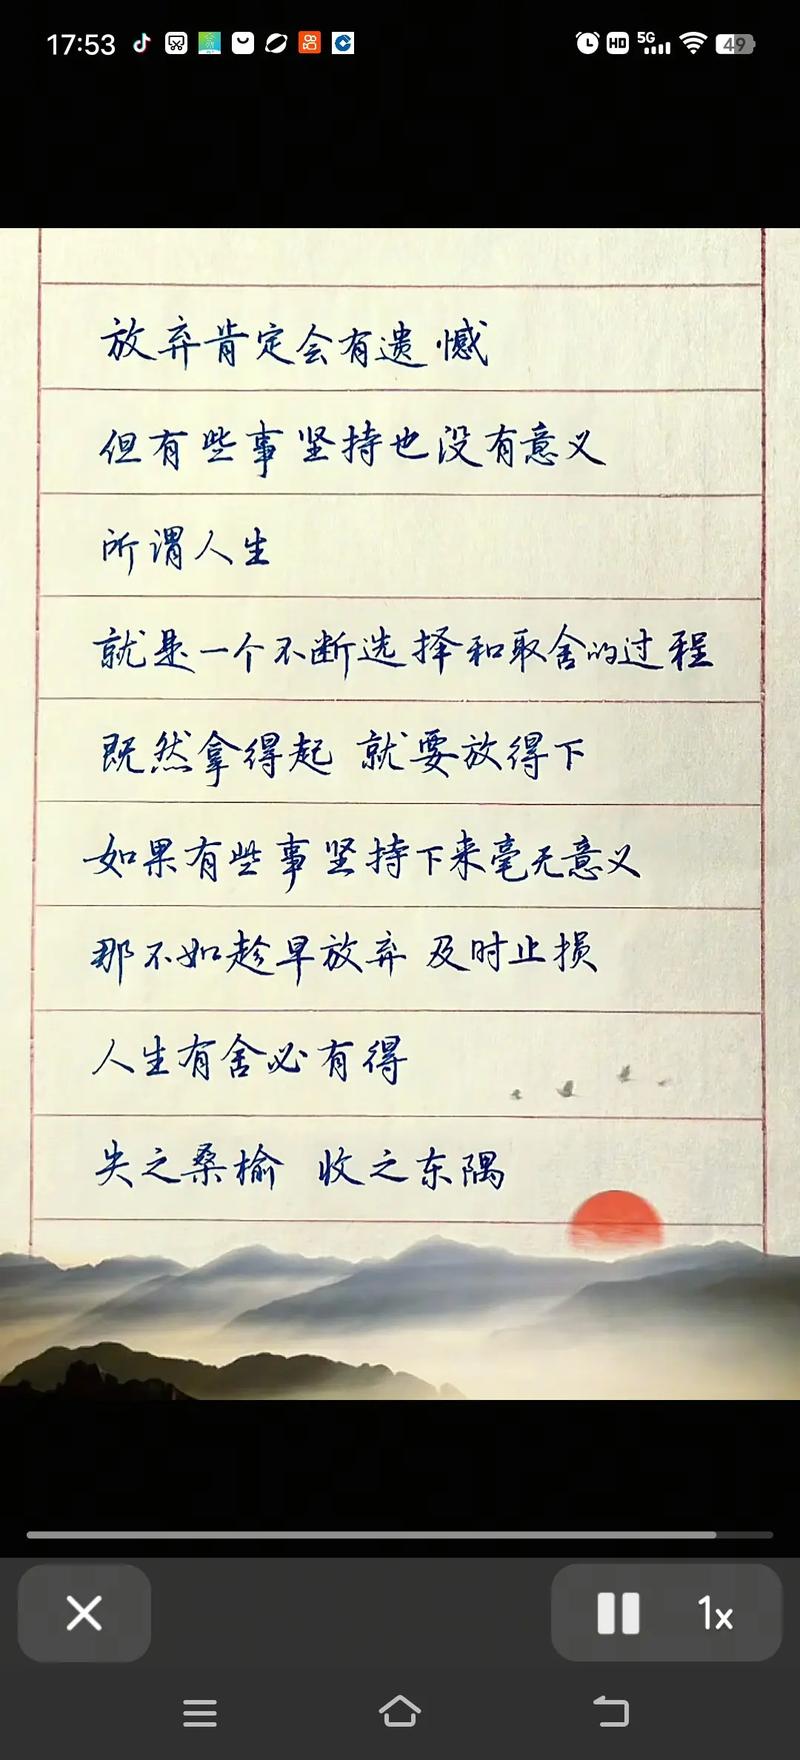 17:53
HD 5G 49
放弃肯定会有遗憾
但有些事坚持也没有意义
所谓人生
就是一个不断选择和取舍的过程
既然拿得起 就要放得下
如果有些事坚持下来毫无意义
那不如趁早放弃 及时止损
人生有舍必有得
失之桑榆 收之东隅
1x